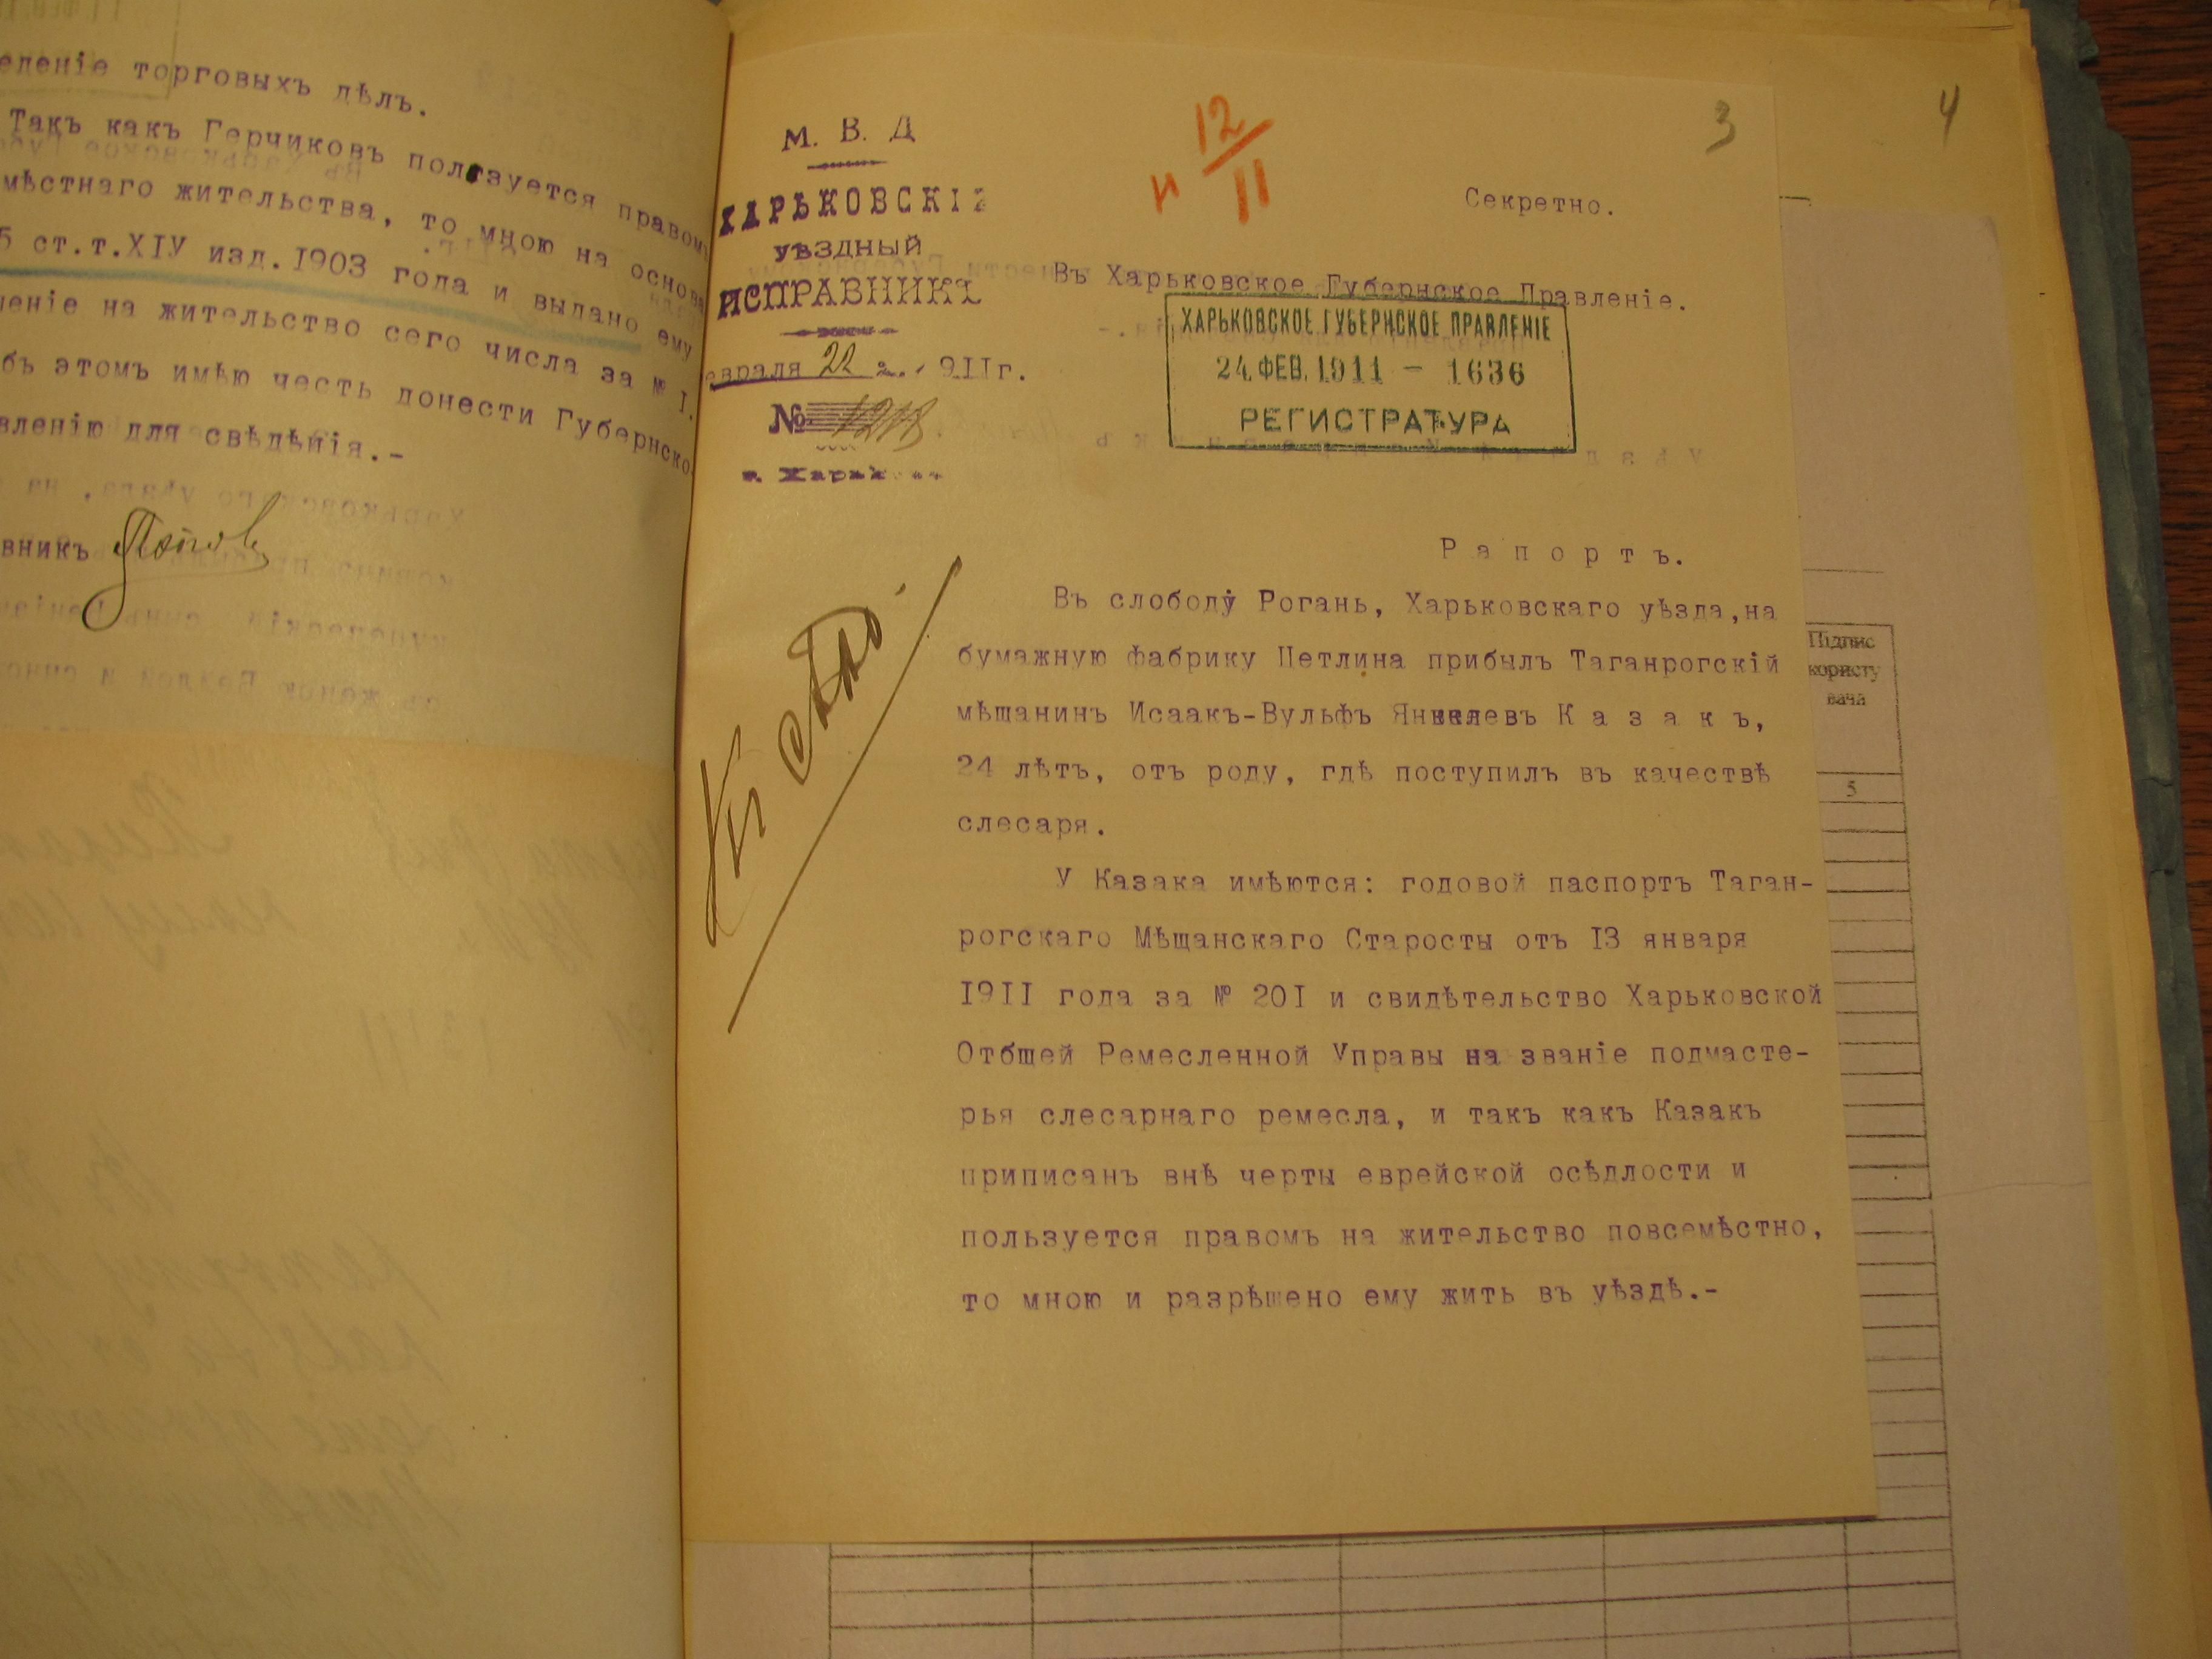 еденіе торговыхъ дѣлъ.
Такъ какъ Герчиковъ пользуется правомъ
мѣстнаго жительства, то мною на основа
5 ст.т.XIУ изд.I903 года и выдано ему
еніе на жительство сего числа за № I.
бъ этомъ имѣю честь донести Губернско
вленію для свѣдѣнія.-
вникъ
3
4
12/11
М. В. Д
ХАРЬКОВСКІЙ
УѢЗДНЫЙ
ИСПРАВНИКЪ
евраля 22 9IIг.
№ 1218
г. Харьков
Секретно.
Въ Харьковское Губернское Правленіе.
ХАРЬКОВСКОЕ ГУБЕРНСКОЕ ПРАВЛЕНІЕ
24. ФЕВ. 1911 - 1636
РЕГИСТРАТУРА
Р а п о р т ъ.
Въ слободу Рогань, Харьковскаго уѣзда,на
бумажную фабрику Петлина прибылъ Таганрогскій
мѣщанинъ Исаакъ-Вульфъ Янкелевъ К а з а к ъ,
24 лѣтъ, отъ роду, гдѣ поступилъ въ качествѣ
слесаря.
У Казака имѣются: годовой паспортъ Таган-
рогскаго Мѣщанскаго Старосты отъ I3 января
I9II года за № 20I и свидѣтельство Харьковской
Отбщей Ремесленной Управы на званіе подмасте-
рья слесарнаго ремесла, и такъ какъ Казакъ
приписанъ внѣ черты еврейской осѣдлости и
пользуется правомъ на жительство повсемѣстно,
то мною и разрѣшено ему жить въ уѣздѣ.-
Підпис
користу
вача
5